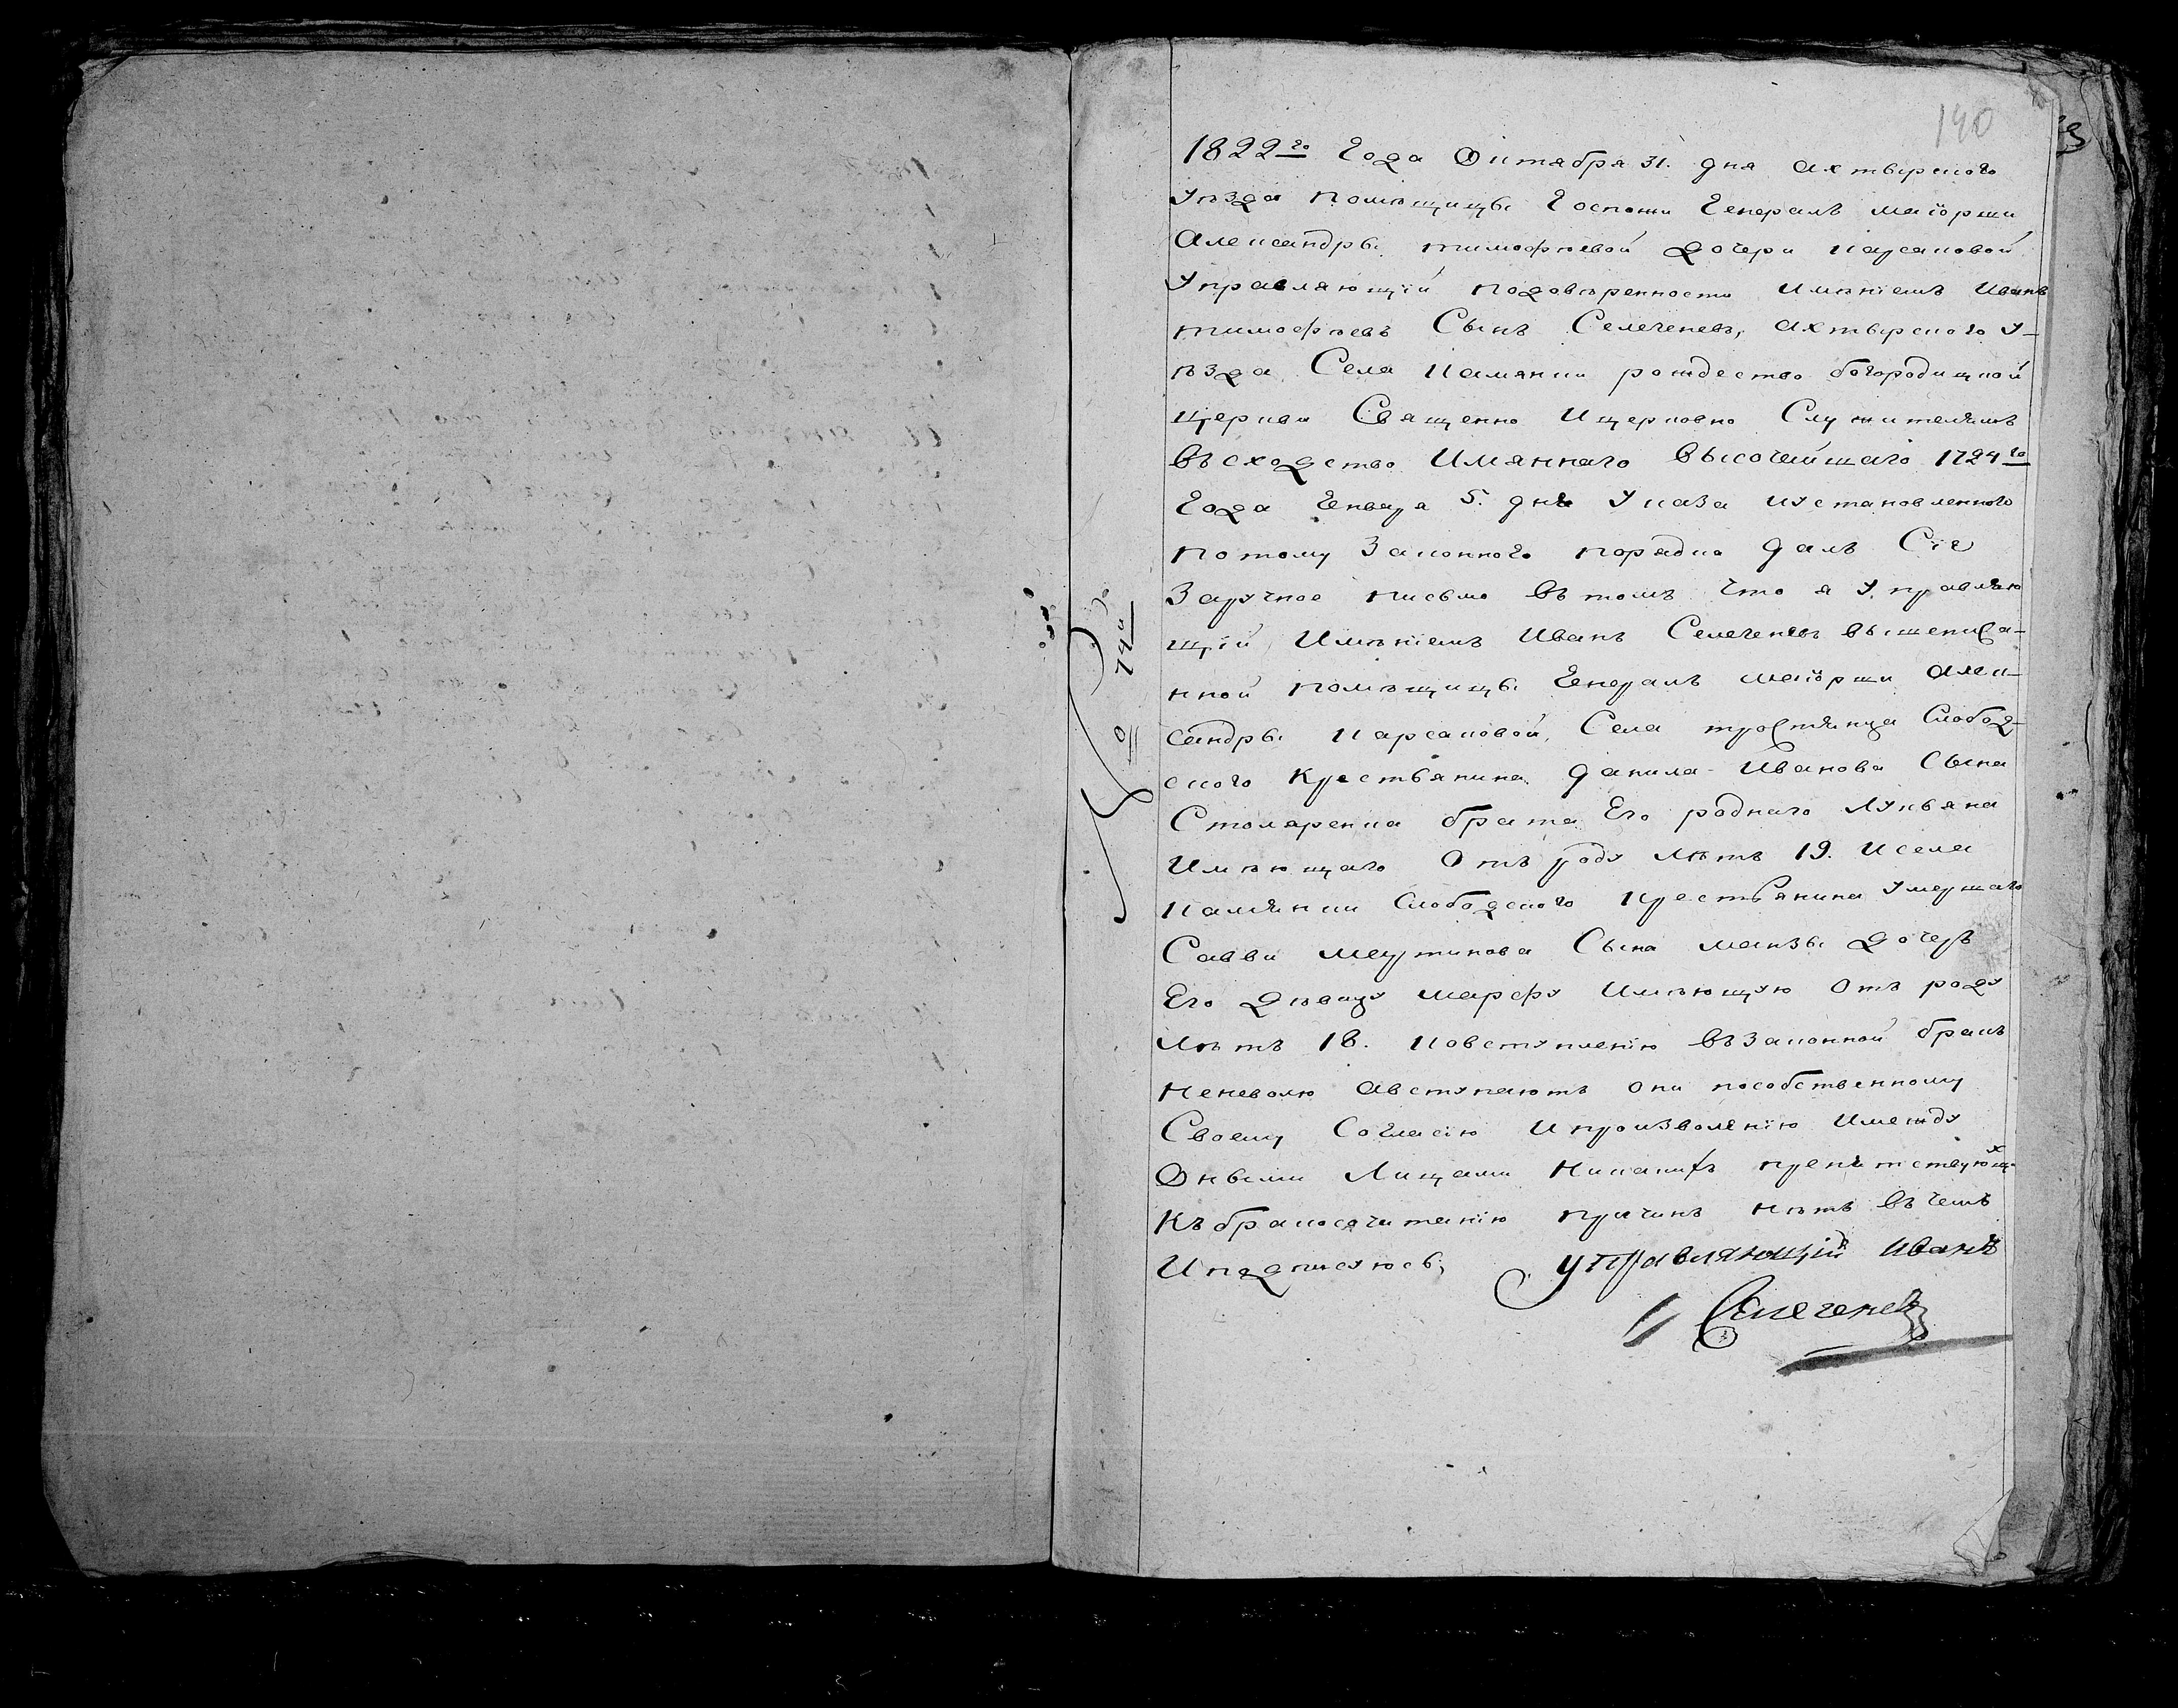 140
1822го Года Октября 31. дня Ахтырского
уѣзда помѣщицы Госпожи Генералъ маіорши
Александры тимофѣевой дочери Карсаковой
Управляющій подовѣренности Имѣніемъ Иванъ
тимофѣевъ Сынъ Селегеневъ, Ахтырского у–
ѣзда Села Камянки рождество богородицкой
церкви Священно Ицерковно Служителямъ
въсходство Имяннаго Высочайшаго 1724го
Года Генваря 5. дня Указа иустановленного
потому Законного порядка далъ Сіе
Заручное письмо въ томъ что я Управляю
щій Имѣніемъ Иванъ Селегеневъ вышеписа–
нной помѣщицы Генералъ маіорши Алек–
сандры Карсаковой, Села тростянца Слобод–
ского Крестьянина Данила Иванова Сына
Столяренка брата Его роднаго Лукьяна
Имѣющаго Отъ роду лѣтъ 19. Исела
Камянки Слободского Крестьянина Умершаго
Савви мартинова Сына манзы дочерь
Его дѣвицу марфу Имѣющую Отъ роду
лѣтъ 18. Ковступленію въЗаконной бракъ
неневолю авступаютъ они пособственному
Своему Согласію Ипроизволенію Имежду
Оными Лицами Никакихъ препятствующихъ
Къбракосочитанію причинъ нѣтъ въчемъ
Иподписуюсь, управляющій Иванъ
Селегеневъ
№ 74й